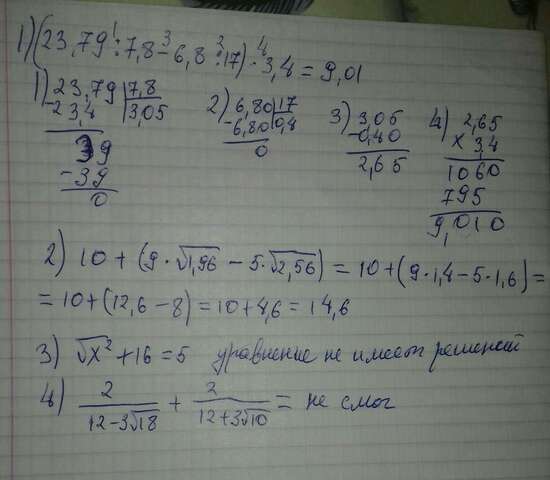 1) (23,79 : 7,8 - 6,8 : 17) · 3,4 = 9,01
1 3 2 4
1) 23,79 | 7,8
- 23,4 | 3,05
39
- 39
0
2) 6,80 | 17
- 6,80 | 0,4
0
3) 3,05
- 0,40
2,65
4) 2,65
x 3,4
1060
795
9,010
2) 10 + (9 · √1,96 - 5 · √2,56) = 10 + (9 · 1,4 - 5 · 1,6) =
= 10 + (12,6 - 8) = 10 + 4,6 = 14,6
3) √x² + 16 = 5 уравнение не имеет решений
4) 2/(12 - 3√18) + 2/(12 + 3√10) = не смог